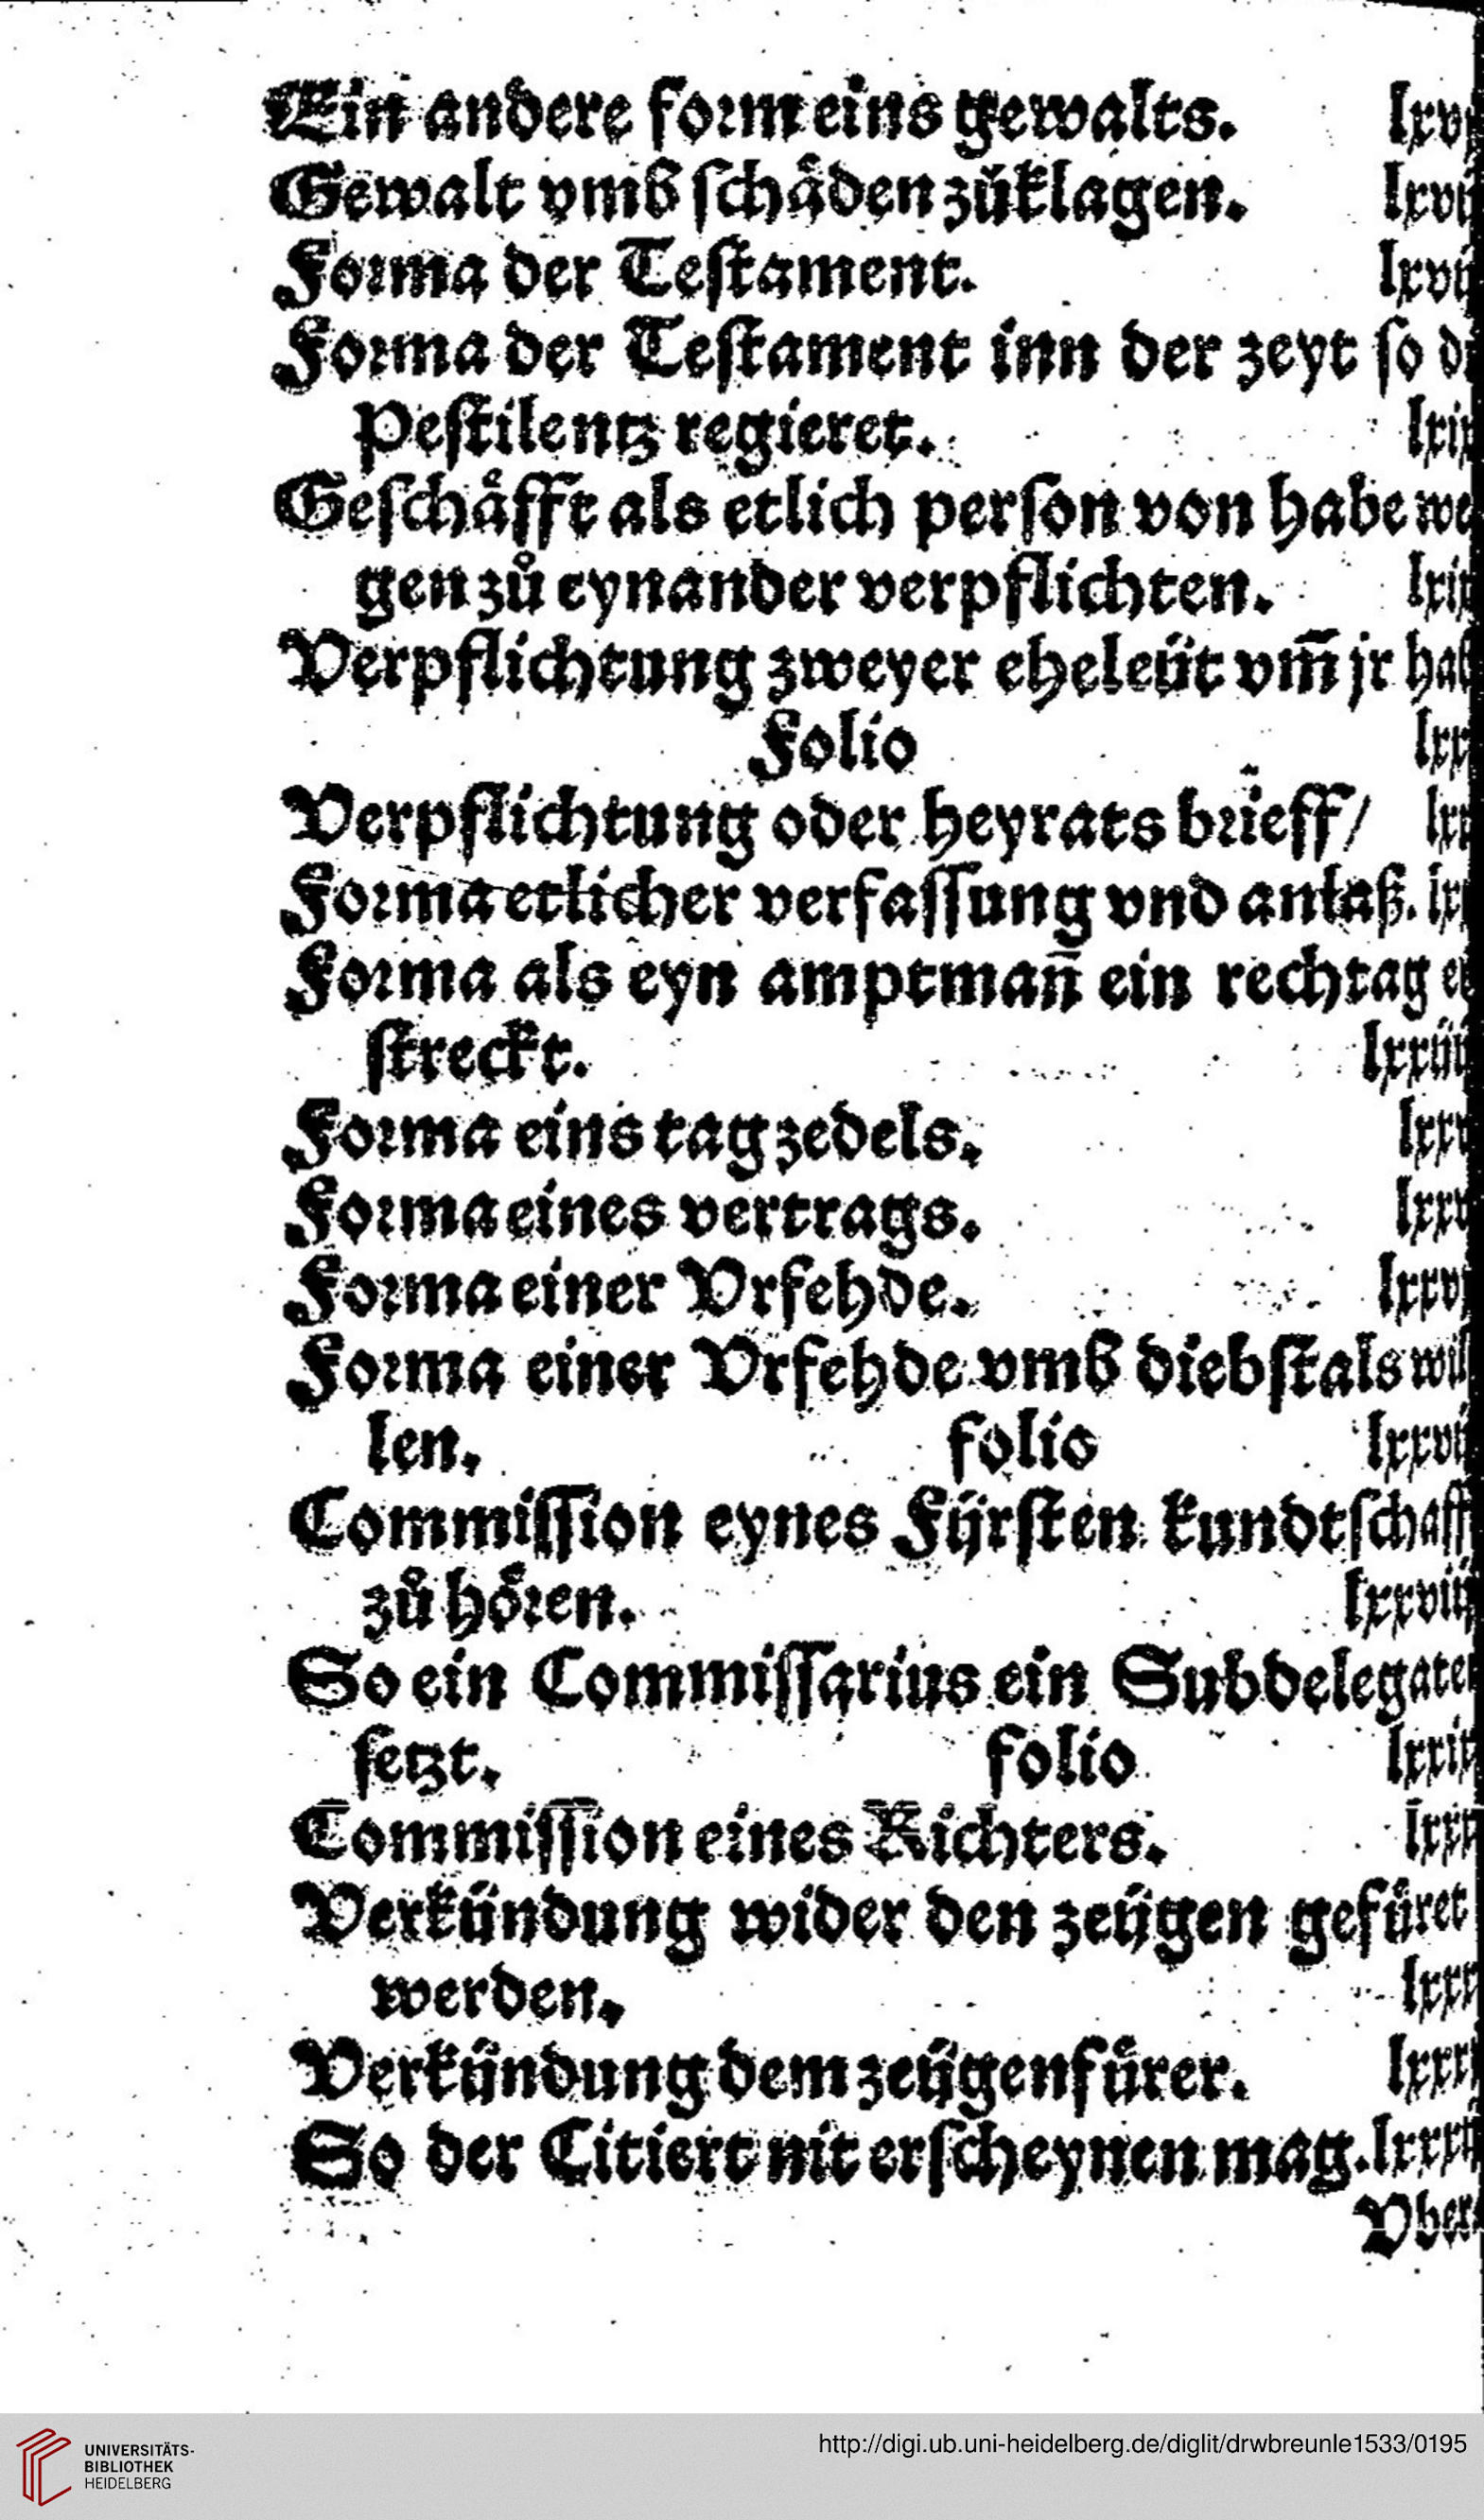 Ein andere form eins gewalts. lxv
Gewalt vmb schåden zůklagen. lxvij
Forma der Testament. lxvij
Forma der Testament inn der zeyt so di
Pestilentz regieret. lxix
Geschåfft als etlich person von habe we
gen zů eynander verpflichten. lxix
Verpflichtung zweyer eheleüt vm̃ jr hab
Folio lxx
Verpflichtung oder heyrats brieff/ lxx
Forma etlicher verfassung vnd anlaß. lxx
Forma als eyn amptmañ ein rechtag er
streckt. lxxiiij
Forma eins tagzedels. lxxv
Forma eines vertrags. lxxv
Forma einer Vrfehde. lxxvj
Forma einer Vrfehde vmb diebstals wil
len. folio lxxvij
Commission eynes Fürsten kundtschafft
zů hören. lxxviij
So ein Commissarius ein Subdelegaten
setzt. folio lxxix
Commission eines Richters. lxxx
Verkündung wider den zeügen gefůret
werden. lxxx
Verkündung dem zeügenfůrer. lxxxj
So der Citiert nit erscheynen mag. lxxxij
Vber
UNIVERSITÄTS-
BIBLIOTHEK
HEIDELBERG
http://digi.ub.uni-heidelberg.de/diglit/drwbreunle1533/0195